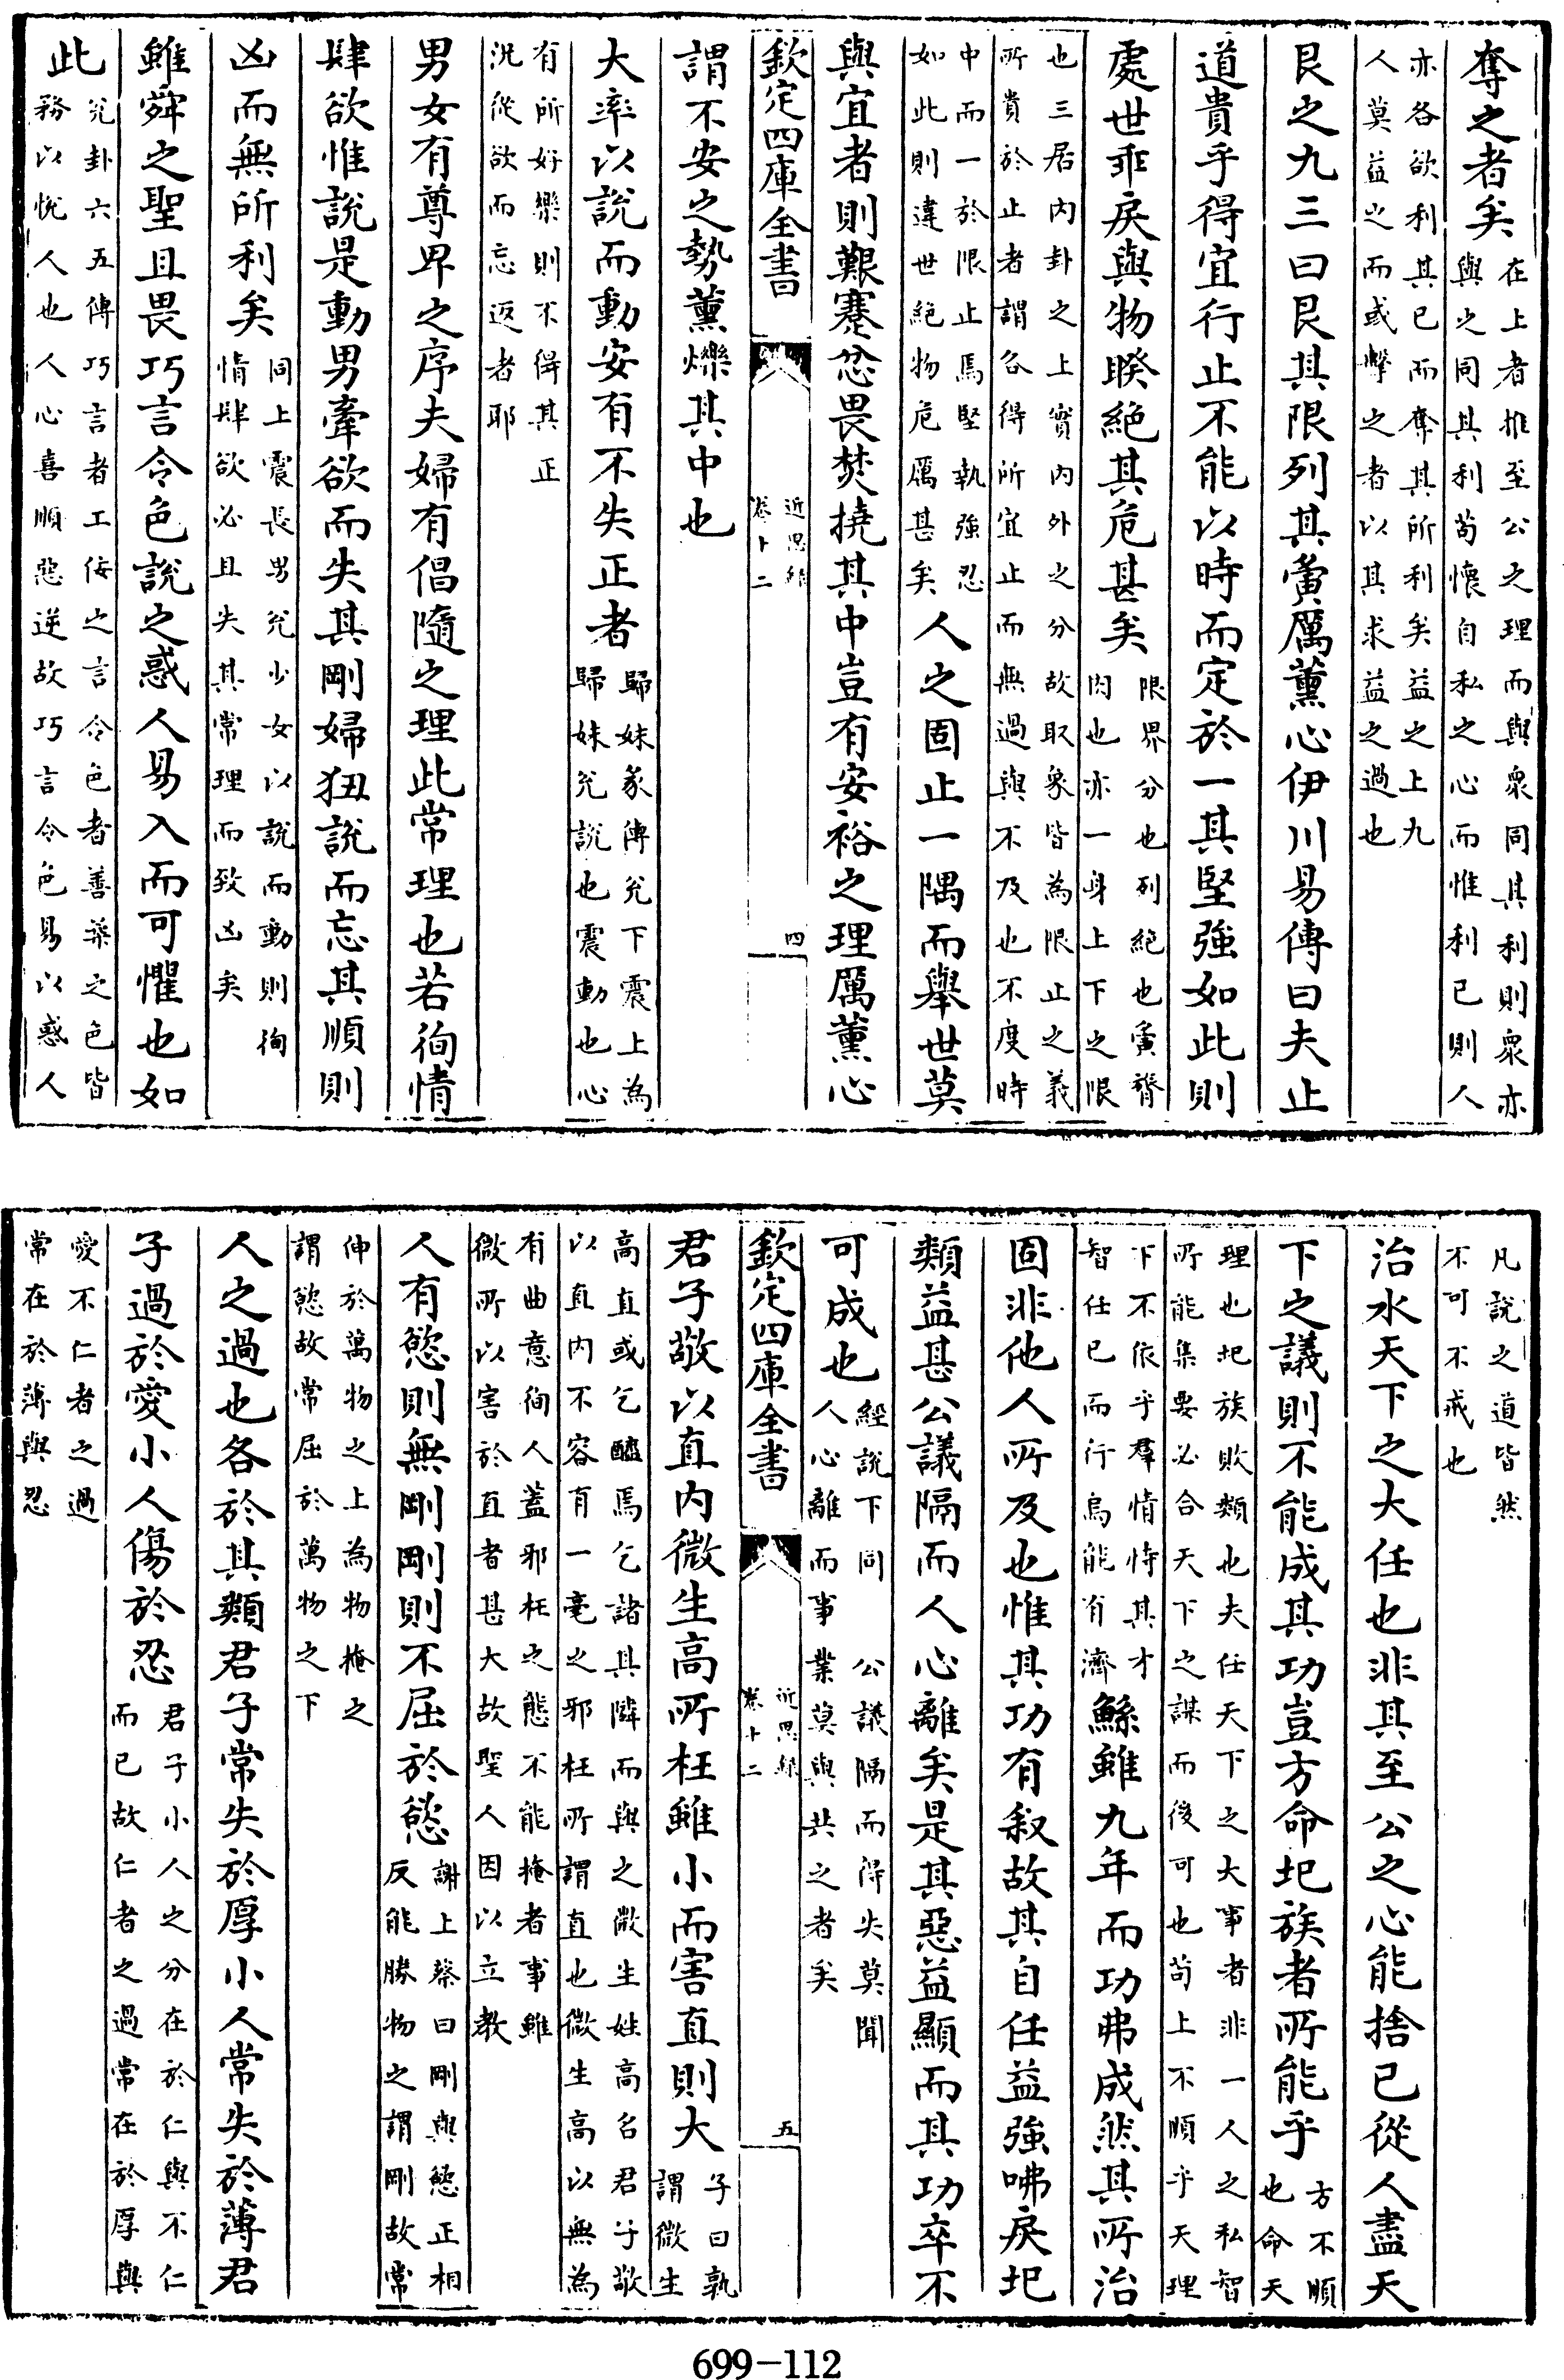 奪之者矣在上者推至公之理而與衆同其利則衆亦與之同其利苟懷自私之心而惟利已則人
亦各欲利其已而奪其所利矣益之上九人莫益之而或擊之者以其求益之過也
艮之九三曰艮其限列其夤厲薰心伊川易傳曰夫止
道貴乎得宜行止不能以時而定於一其堅強如此則
處世乖戾與物睽絶其危甚矣限界分也列絶也夤膂肉也亦一身上下之限
也三居内卦之上實内外之分故取象皆為限止之義所貴於止者謂各得所宜止而無過與不及也不度時
中而一於限止焉堅執強忍如此則違世絶物危厲甚矣人之固止一隅而舉世莫
與宜者則艱蹇忿畏焚撓其中豈有安裕之理厲薰心
欽定四庫全書
近思錄卷十二
四
謂不安之勢薰爍其中也
大率以說而動安有不失正者歸妹彖傳兊下震上為歸妹兊說也震動也心
有所好樂則不得其正況從欲而忘返者耶
男女有尊卑之序夫婦有倡隨之理此常理也若徇情
肆欲惟說是動男牽欲而失其剛婦狃說而忘其順則
凶而無所利矣同上震長男兊少女以說而動則徇情肆欲必且失其常理而致凶矣
雖舜之聖且畏巧言令色說之惑人易入而可懼也如
此兊卦六五傳巧言者工佞之言令色者善柔之色皆務以悅人也人心喜順惡逆故巧言令色易以惑人
凡說之道皆然不可不戒也
治水天下之大任也非其至公之心能捨已從人盡天
下之議則不能成其功豈方命圯族者所能乎方不順也命天
理也圯族敗類也夫任天下之大事者非一人之私智所能集要必合天下之謀而後可也苟上不順乎天理
下不依乎羣情恃其才智任已而行烏能有濟鯀雖九年而功弗成然其所治
固非他人所及也惟其功有叙故其自任益強咈戾圯
類益甚公議隔而人心離矣是其惡益顯而其功卒不
可成也經說下同 公議隔而得失莫聞人心離而事業莫與共之者矣
欽定四庫全書
近思錄卷十二
五
君子敬以直内微生高所枉雖小而害直則大子曰孰謂微生
高直或乞醯焉乞諸其隣而與之微生姓高名君子敬以直内不容有一毫之邪枉所謂直也微生高以無為
有曲意徇人蓋邪枉之態不能掩者事雖微所以害於直者甚大故聖人因以立教
人有慾則無剛剛則不屈於慾謝上蔡曰剛與慾正相反能勝物之謂剛故常
伸於萬物之上為物掩之謂慾故常屈於萬物之下
人之過也各於其類君子常失於厚小人常失於薄君
子過於愛小人傷於忍君子小人之分在於仁與不仁而已故仁者之過常在於厚與
愛不仁者之過常在於薄與忍
699-112